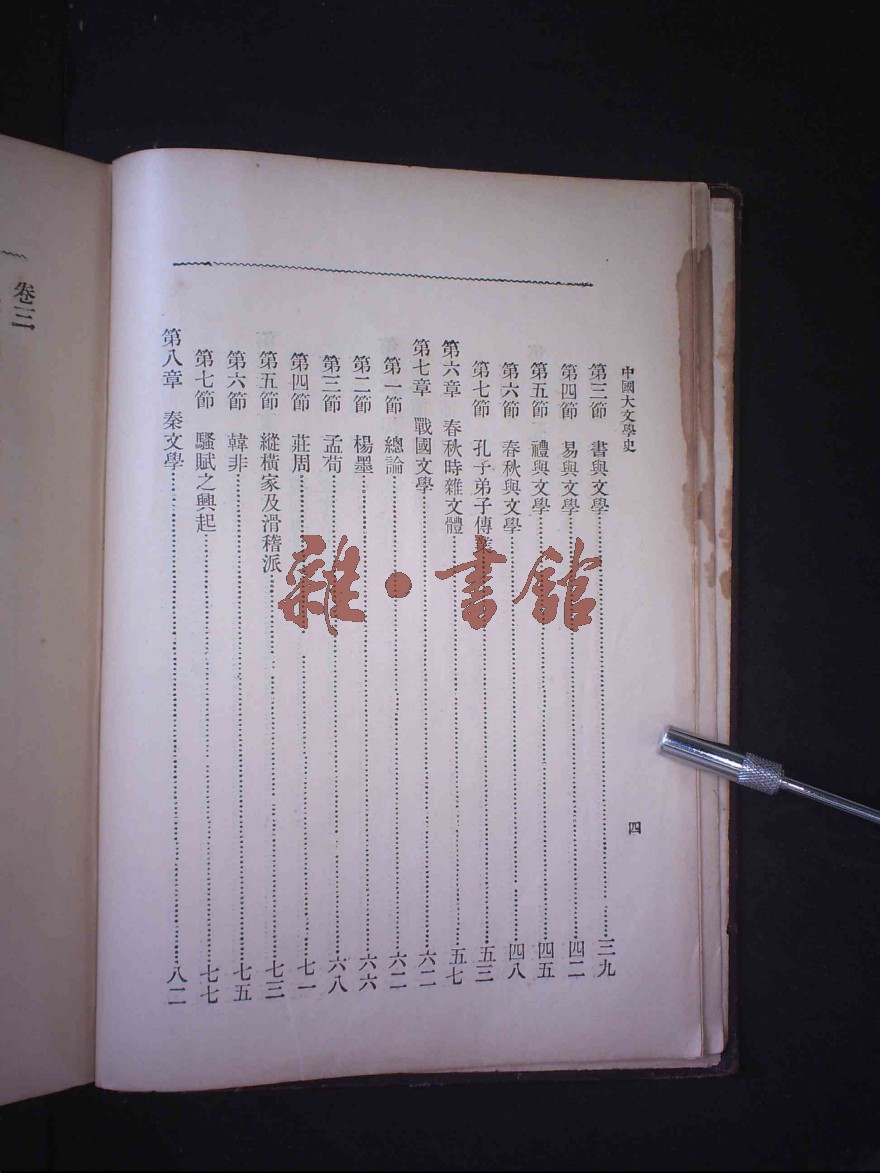 中國大文學史
四
第三節　書與文學………三九
第四節　易與文學………四二
第五節　禮與文學………四五
第六節　春秋與文學………四八
第七節　孔子弟子傳業………五三
第六章　春秋時雜文體………五七
第七章　戰國文學………六二
第一節　總論………六二
第二節　楊墨………六六
第三節　孟荀………六八
第四節　莊周………七一
第五節　縱橫家及滑稽派………七三
第六節　韓非………七五
第七節　騷賦之興起………七七
第八章　秦文學………八二
卷三
雜·書館